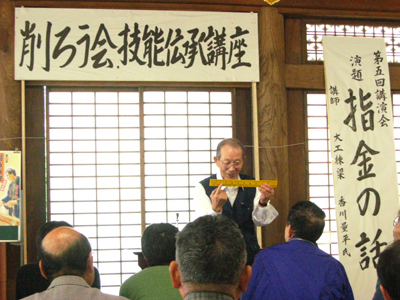 削ろう会技能伝承講座
第五回講演会
演題 指金の話
講師 大工棟梁 香川量平氏